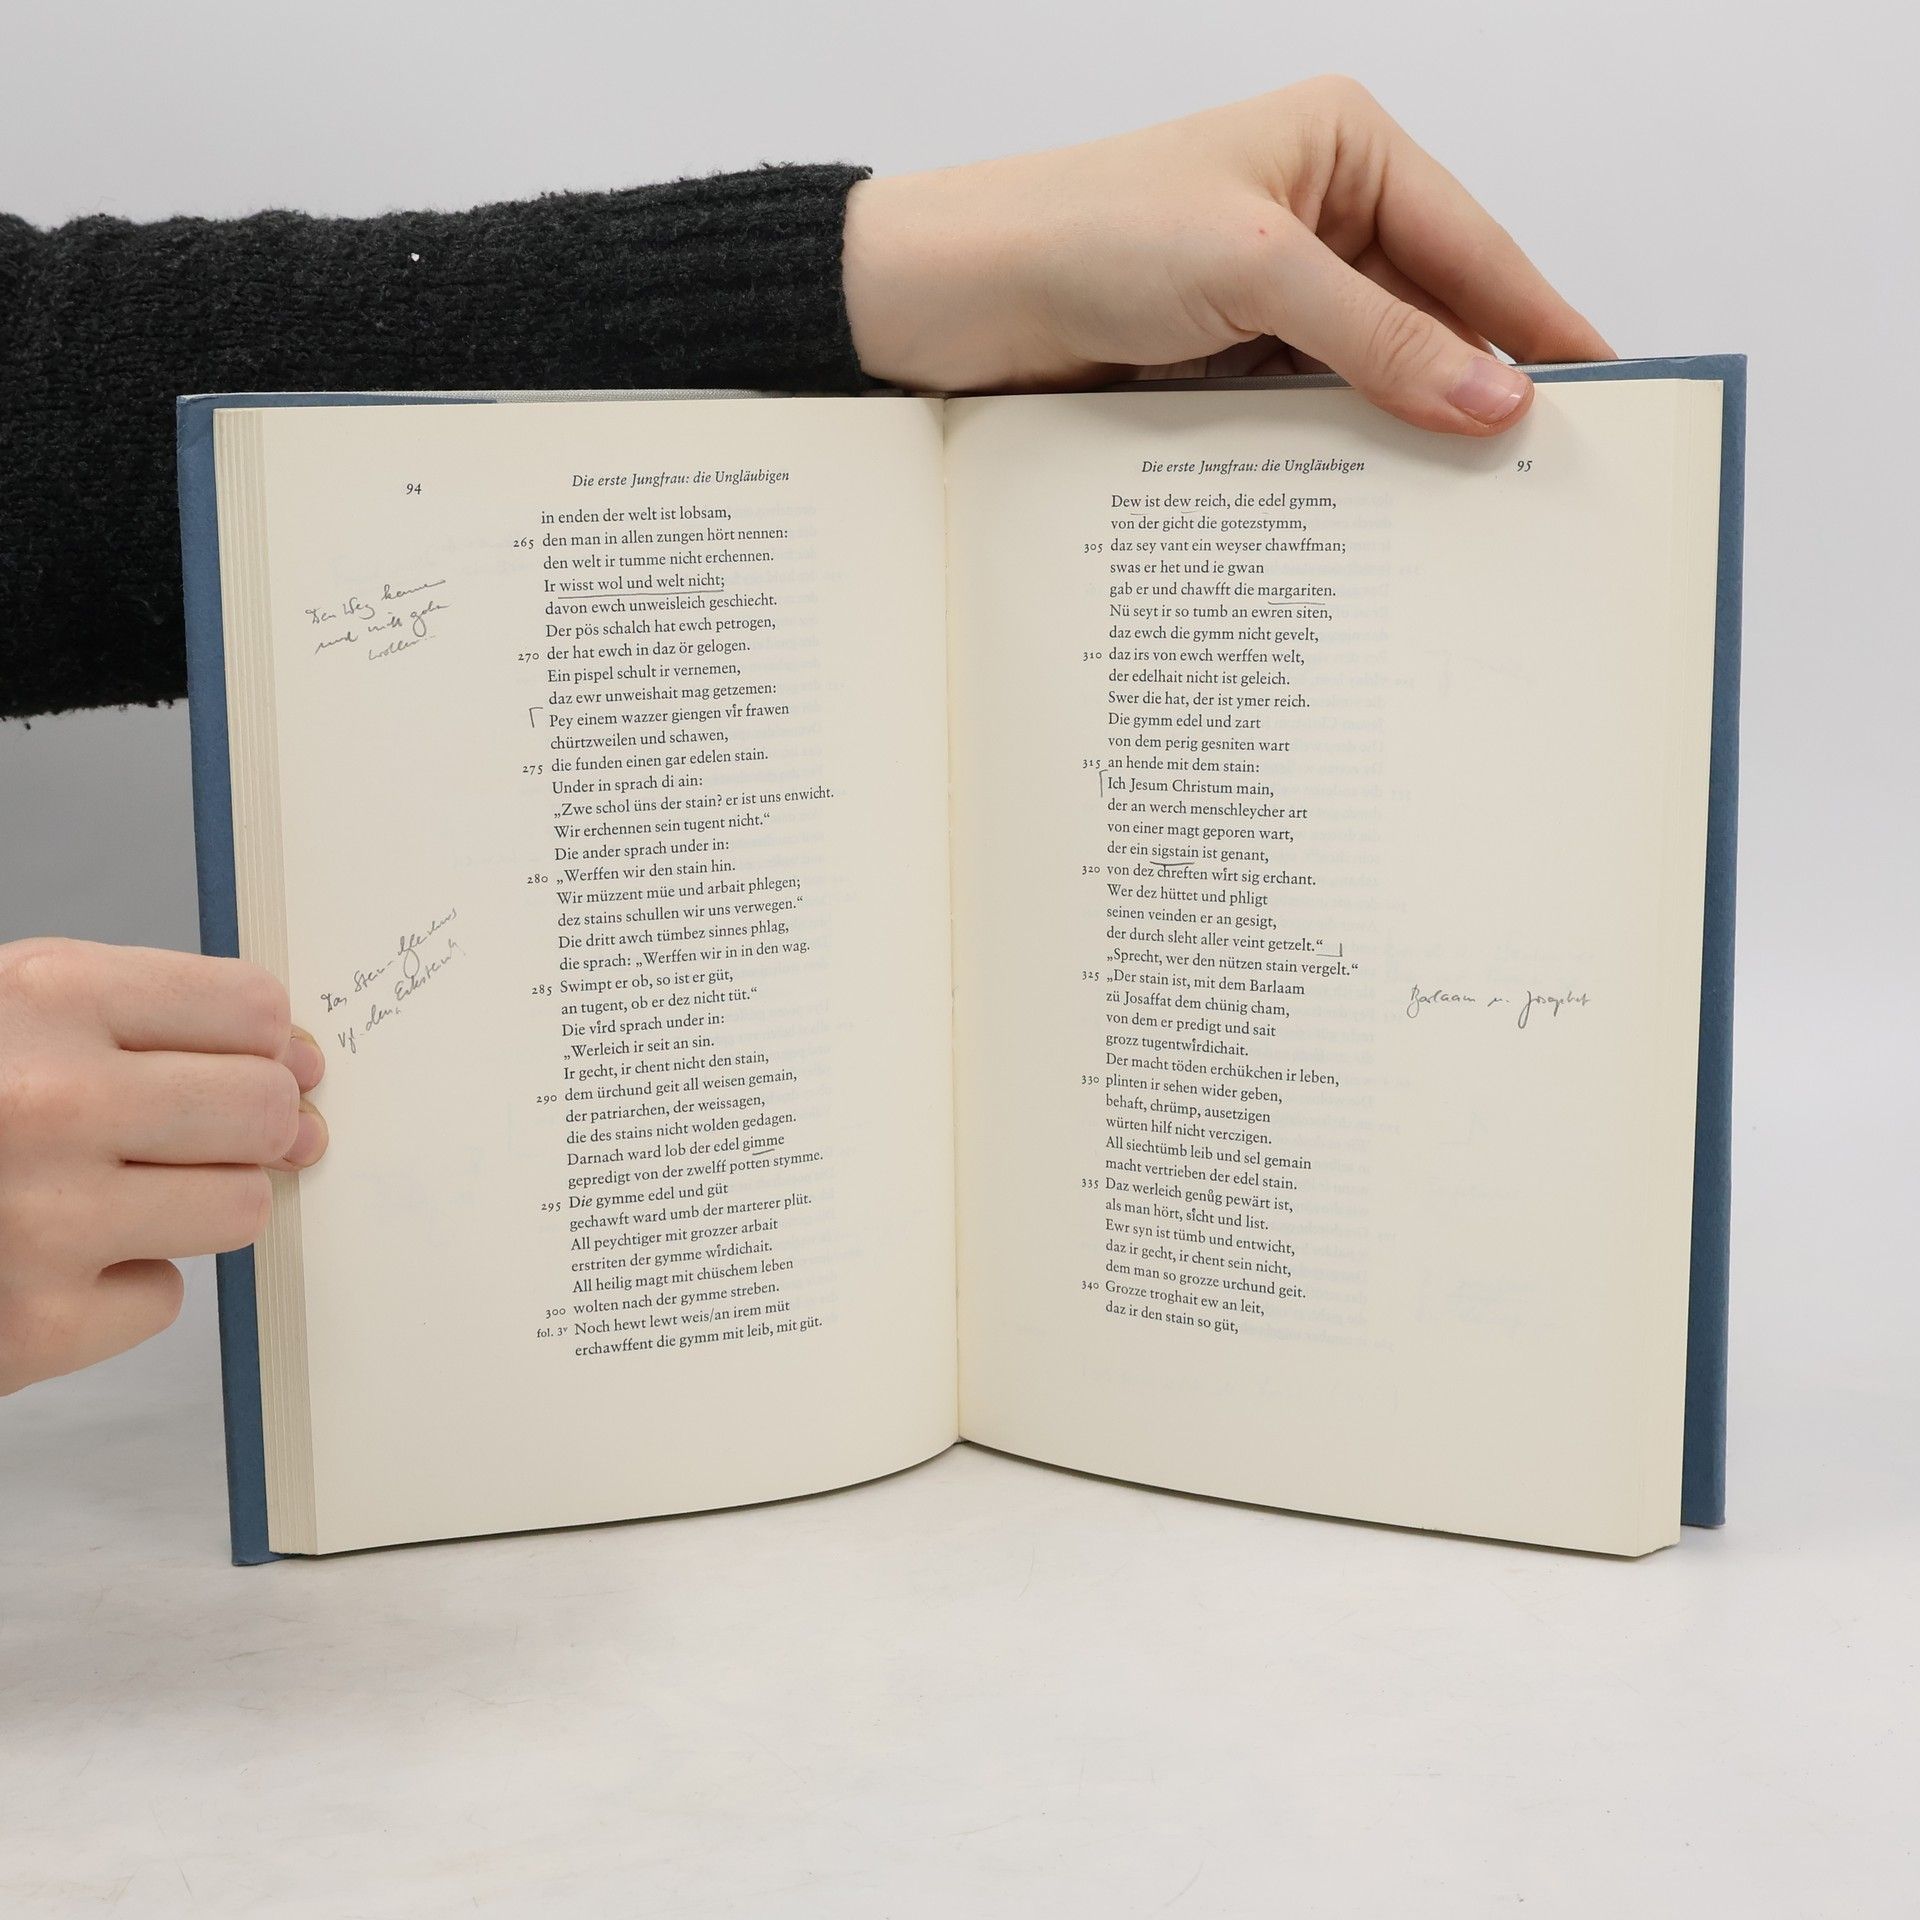 94
Die erste Jungfrau: die Ungläubigen
in enden der welt ist lobsam,
265 den man in allen zungen hört nennen:
den welt ir tumme nicht erchennen.
Ir wisst wol und welt nicht;
davon ewch unweisleich geschiecht.
Der pös schalch hat ewch petrogen,
270 der hat ewch in daz ör gelogen.
Ein pispel schult ir vernemen,
daz ewr unweishait mag getzemen:
Pey einem wazzer giengen vir frawen
chürtzweilen und schawen,
275 die funden einen gar edelen stain.
Under in sprach di ain:
„Zwe schol üns der stain? er ist uns enwicht.
Wir erchennen sein tugent nicht.“
Die ander sprach under in:
280 „Werffen wir den stain hin.
Wir müzzent müe und arbait phlegen;
dez stains schullen wir uns verwegen.“
Die dritt awch tümbez sinnes phlag,
die sprach: „Werffen wir in in den wag.
285 Swimpt er ob, so ist er güt,
an tugent, ob er dez nicht tüt.“
Die vird sprach under in:
„Werleich ir seit an sin.
Ir gecht, ir chent nicht den stain,
290 dem ürchund geit all weisen gemain,
der patriarchen, der weissagen,
die des stains nicht wolden gedagen.
Darnach ward lob der edel gimme
gepredigt von der zwelff potten stymme.
295 Die gymme edel und güt
gechawft ward umb der marterer plüt.
All peychtiger mit grozzer arbait
erstriten der gymme wirdichait.
All heilig magt mit chüschem leben
300 wolten nach der gymme streben.
fol. 3v Noch hewt lewt weis/an irem müt
erchawffent die gymm mit leib, mit güt.
Den Weg kennen
und nicht gehn
wollen
Das Stein-
Vgl. den Eckstein!
Die erste Jungfrau: die Ungläubigen
95
Dew ist dew reich, die edel gymm,
von der gicht die gotezstymm,
305 daz sey vant ein weyser chawffman;
swas er het und ie gwan
gab er und chawfft die margariten.
Nü seyt ir so tumb an ewren siten,
daz ewch die gymm nicht gevelt,
310 daz irs von ewch werffen welt,
der edelhait nicht ist geleich.
Swer die hat, der ist ymer reich.
Die gymm edel und zart
von dem perig gesniten wart
315 an hende mit dem stain:
Ich Jesum Christum main,
der an werch menschleycher art
von einer magt geporen wart,
der ein sigstain ist genant,
320 von dez chreften wirt sig erchant.
Wer dez hüttet und phligt
seinen veinden er an gesigt,
der durch sleht aller veint getzelt.“
„Sprecht, wer den nützen stain vergelt.“
325 „Der stain ist, mit dem Barlaam
zü Josaffat dem chünig cham,
von dem er predigt und sait
grozz tugentwirdichait.
Der macht töden erchükchen ir leben,
330 plinten ir sehen wider geben,
behaft, chrümp, ausetzigen
würten hilf nicht verczigen.
All siechtümb leib und sel gemain
macht vertrieben der edel stain.
335 Daz werleich genüg pewärt ist,
als man hört, sicht und list.
Ewr syn ist tümb und entwicht,
daz ir gecht, ir chent sein nicht,
dem man so grozze urchund geit.
340 Grozze troghait ew an leit,
daz ir den stain so güt,
Barlaam u. Josaphat